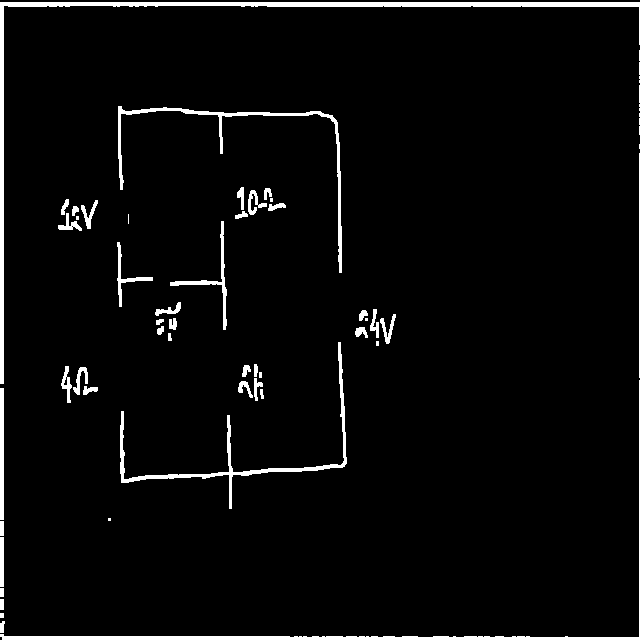 12V
10Ω
24V
4Ω
2H